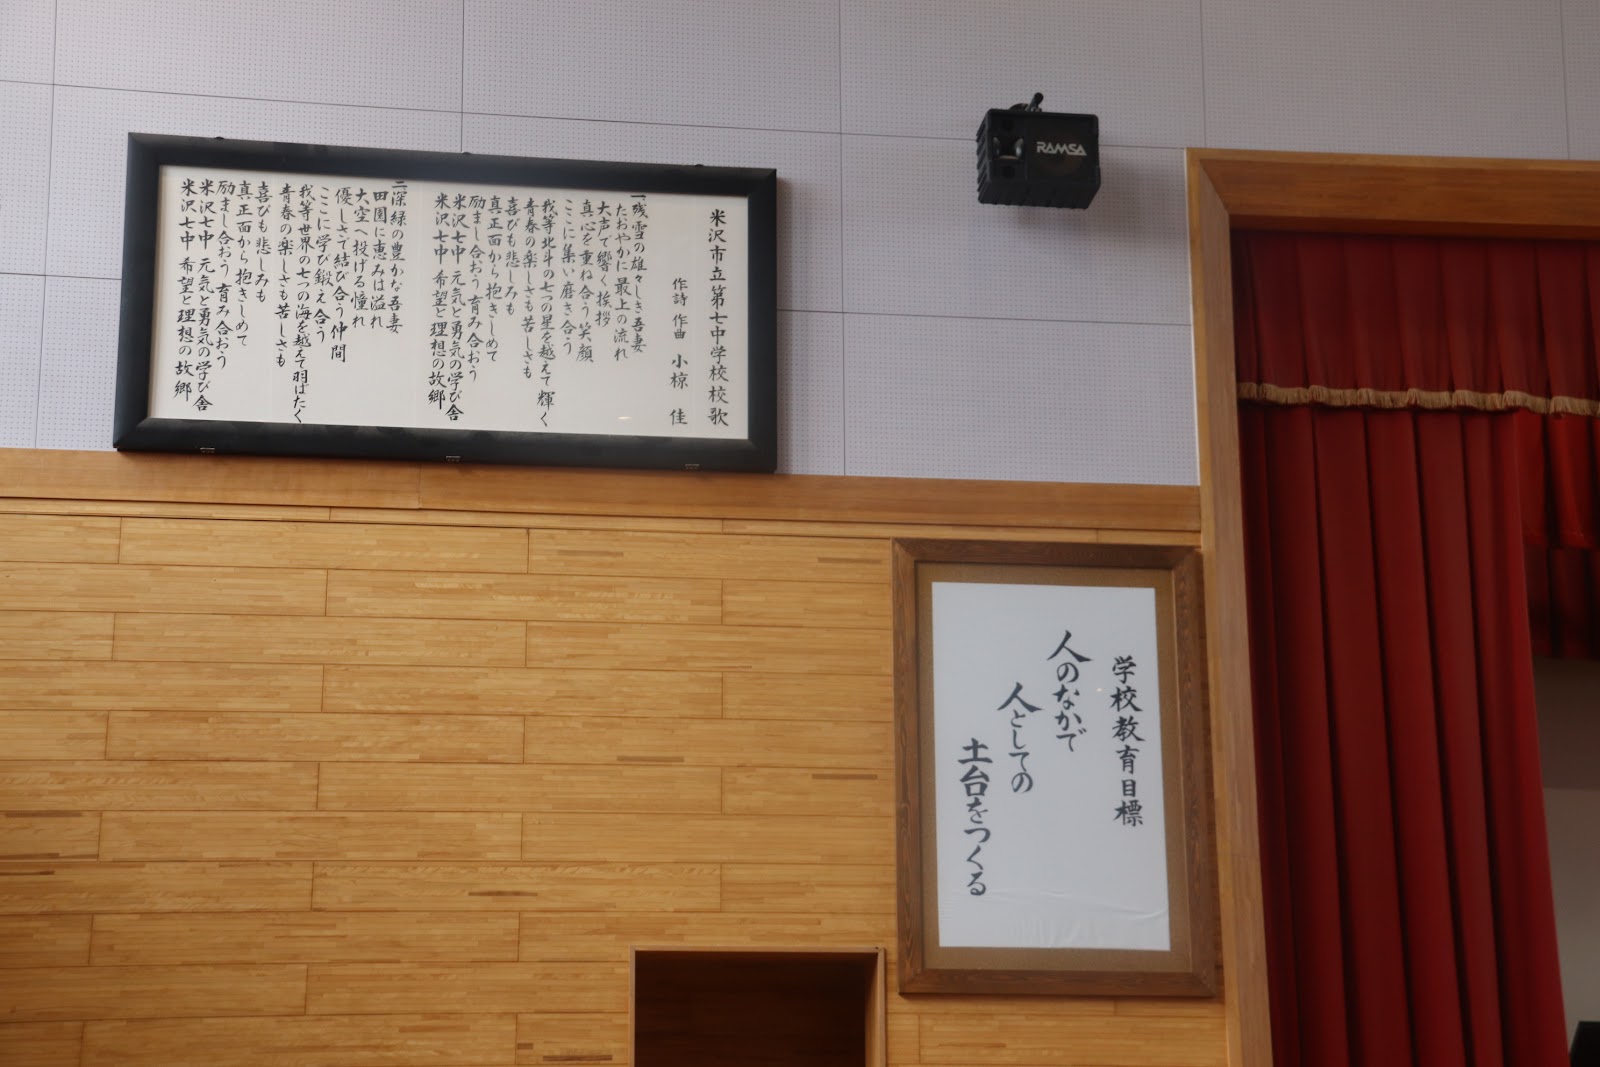 米沢市立第七中学校校歌
作詩 作曲 小椋 佳
一残雪の雄々しき吾妻
たおやかに最上の流れ
大声で響く挨拶
真心を重ね合う笑顔
ここに集い磨き合う
我等北斗の七つの星を越えて輝く
青春の楽しさも苦しさも
喜びも悲しみも
真正面から抱きしめて
励まし合おう育み合おう
米沢七中 元気と勇気の学び舎
米沢七中 希望と理想の故郷
二深緑の豊かな吾妻
田園に恵みは溢れ
大空へ投げる憧れ
優しさで結び合う仲間
ここに学び鍛え合う
我等世界の七つの海を越えて羽ばたく
青春の楽しさも苦しさも
喜びも悲しみも
真正面から抱きしめて
励まし合おう育み合おう
米沢七中 元気と勇気の学び舎
米沢七中 希望と理想の故郷
RAMSA
学校教育目標
人のなかで
人としての
土台をつくる